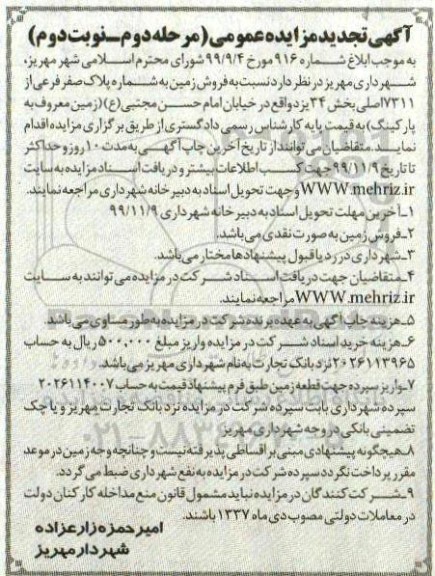 آگهی تجدید مزایده عمومی (مرحله دوم_نوبت دوم)
به موجب ابلاغ شماره ۹۱۶ مورخ ۹۹/۹/۴ شورای محترم اسلامی شهر مهریز،
شهرداری مهریز در نظر دارد نسبت به فروش زمین به شماره پلاک صفر فرعی از
۷۳۱۱ اصلی بخش ۳۴ یزد واقع در خیابان امام حسن مجتبی (ع) (زمین معروف به
پارکینگ) به قیمت پایه کارشناس رسمی دادگستری از طریق برگزاری مزایده اقدام
نماید. متقاضیان می توانند از تاریخ آخرین چاپ آگهی به مدت ۱۰ روز و حداکثر
تا تاریخ ۹۹/۱۱/۹ جهت کسب اطلاعات بیشتر و دریافت اسناد مزایده به سایت
WWW.mehriz.ir و جهت تحویل اسناد به دبیرخانه شهرداری مراجعه نمایند.
۱_آخرین مهلت تحویل اسناد به دبیرخانه شهرداری ۹۹/۱۱/۹
۲_فروش زمین به صورت نقدی می باشد.
۳_شهرداری در رد یا قبول پیشنهادها مختار می باشد.
۴_متقاضیان جهت دریافت اسناد شرکت در مزایده می توانند به سایت
WWW.mehriz.ir مراجعه نمایند.
۵_هزینه چاپ آگهی به عهده برنده شرکت در مزایده به طور مساوی می باشد.
۶_هزینه خرید اسناد شرکت در مزایده واریز مبلغ ۵۰۰.۰۰۰ ریال به حساب
۲۰۲۶۱۱۳۹۶۵ نزد بانک تجارت به نام شهرداری مهریز می باشد.
۷_واریز سپرده جهت قطعه زمین طبق فرم پیشنهاد قیمت به حساب ۲۰۲۶۱۱۴۰۰۷
سپرده شهرداری بابت سپرده شرکت در مزایده نزد بانک تجارت مهریز و یا چک
تضمینی بانکی در وجه شهرداری مهریز
۸_هیچگونه پیشنهادی مبنی بر اقساطی پذیرفته نیست و چنانچه وجه زمین در موعد
مقرر پرداخت نگردد سپرده شرکت در مزایده به نفع شهرداری ضبط می گردد.
۹_شرکت کنندگان در مزایده نباید مشمول قانون منع مداخله کارکنان دولت
در معاملات دولتی مصوب دی ماه ۱۳۳۷ باشند.
امیر حمزه زارعزاده
شهردار مهریز